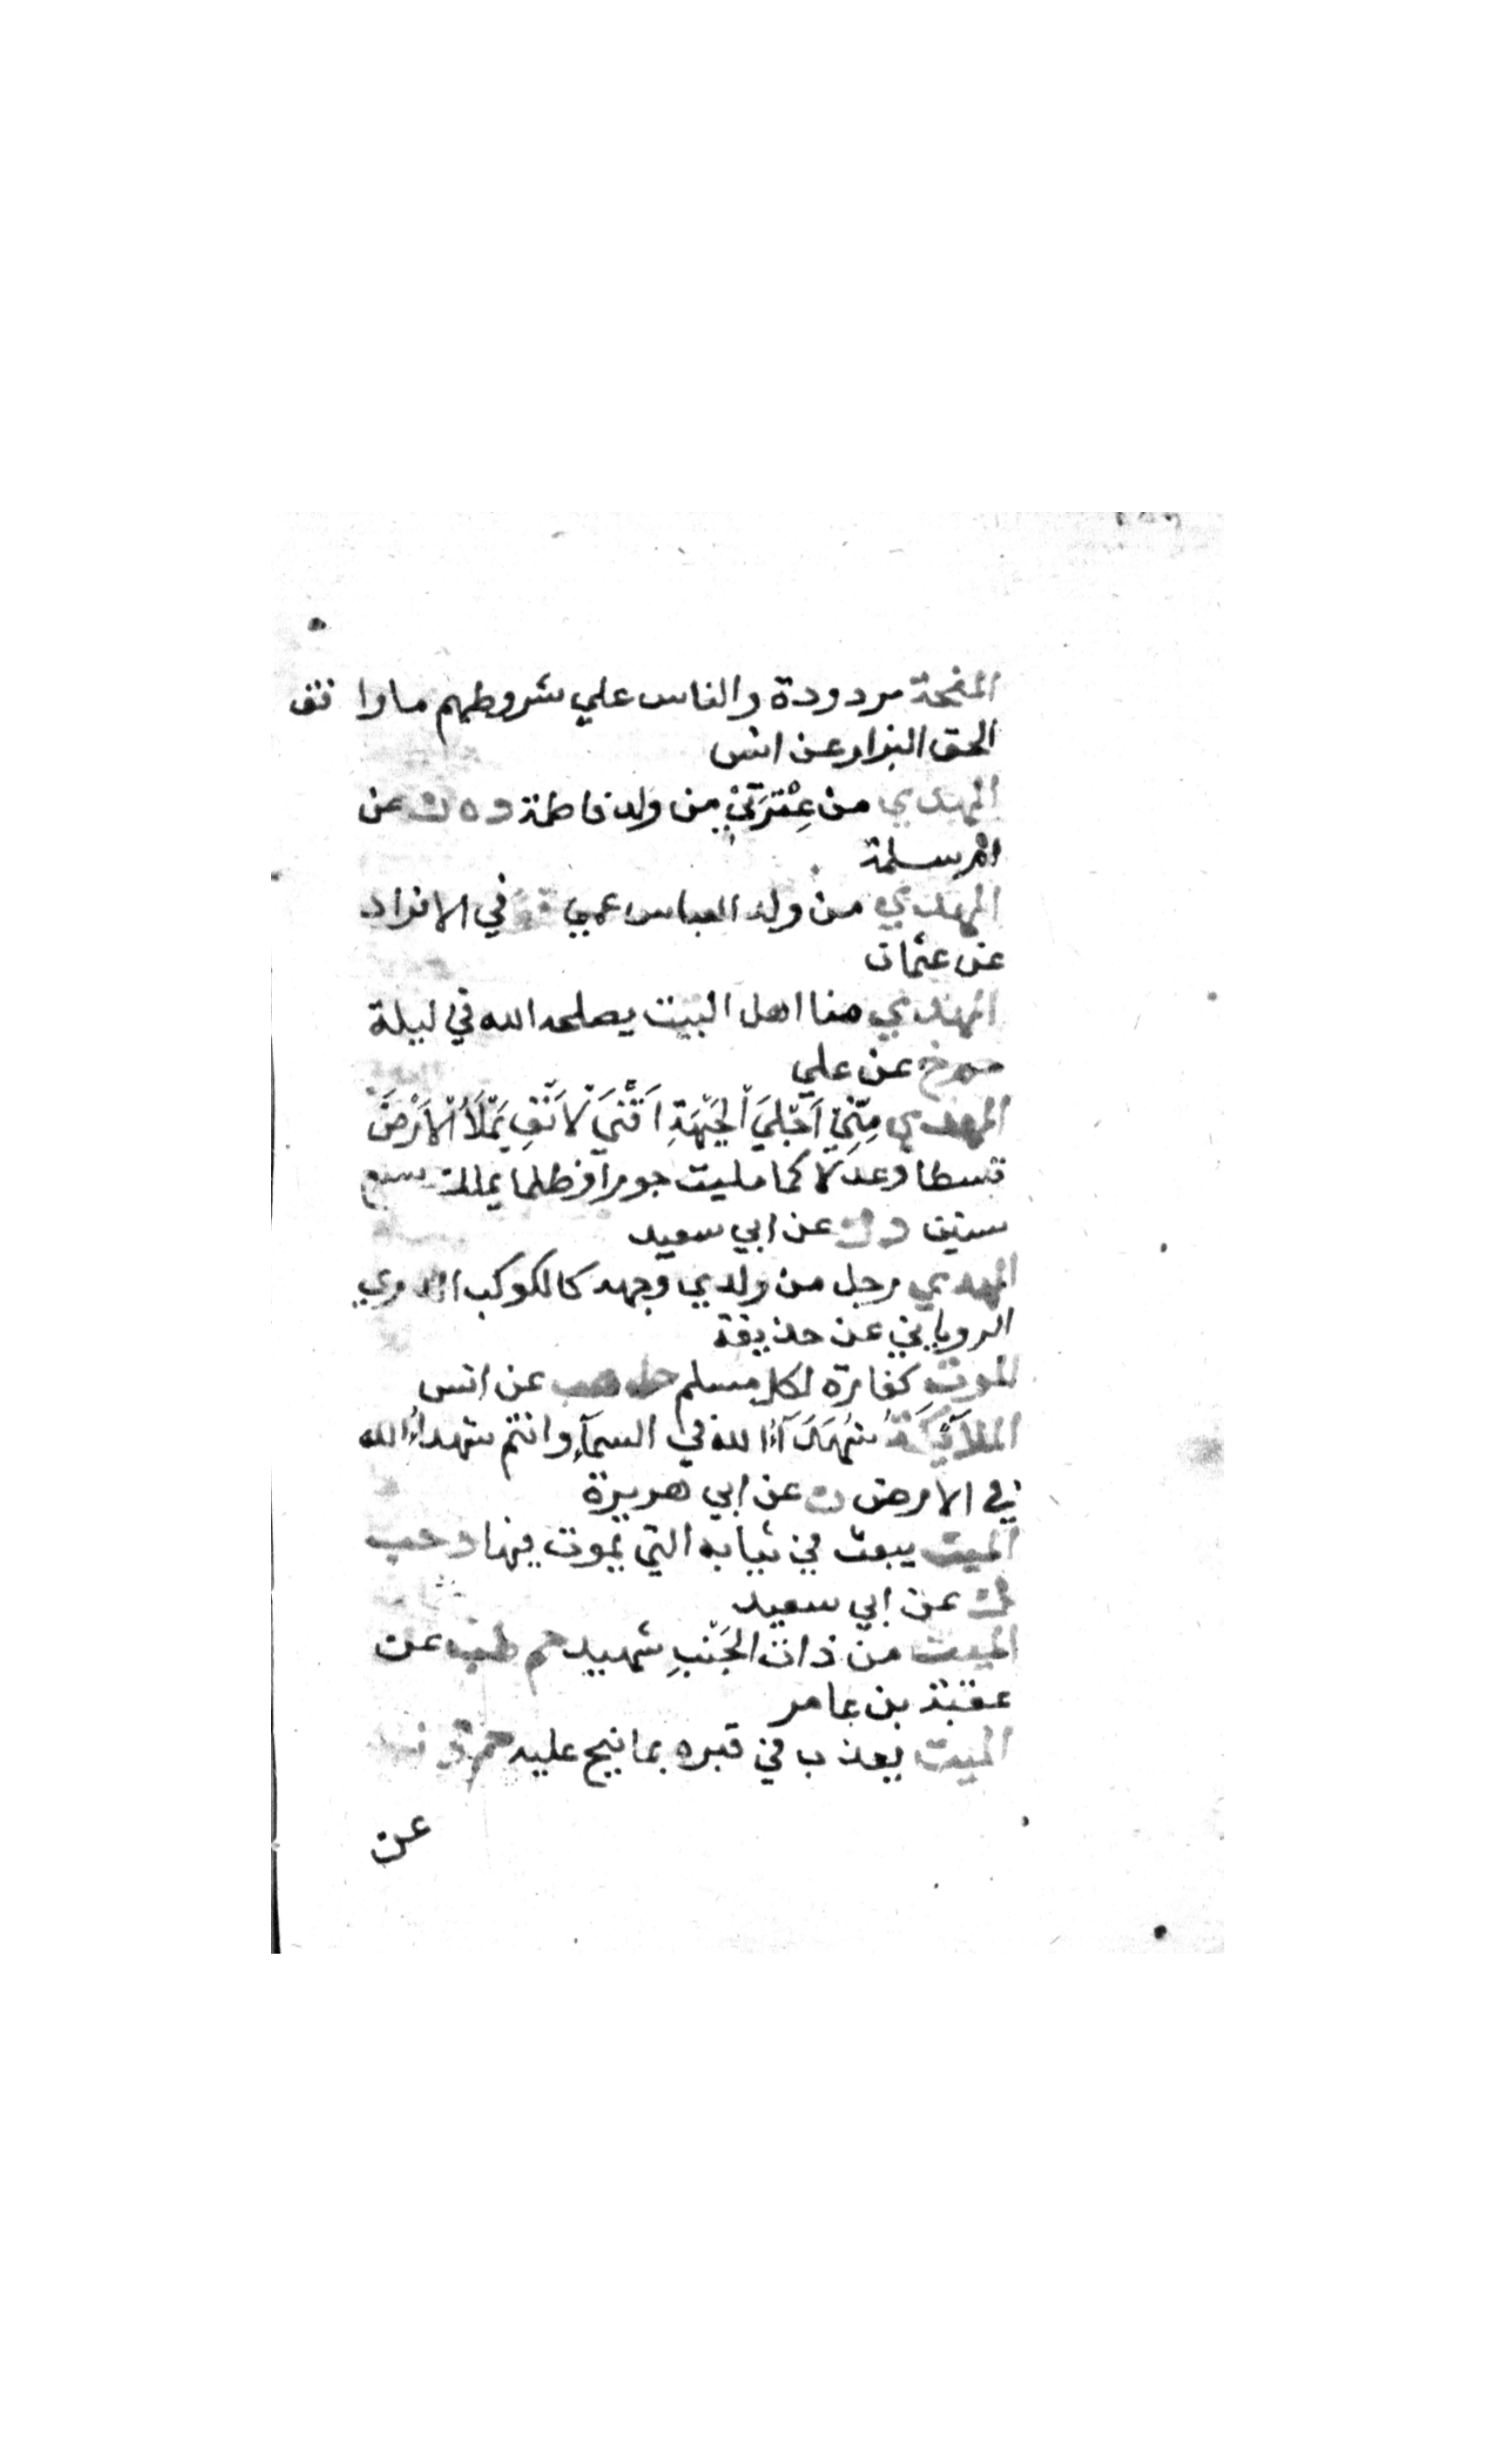 المنحة مردودة والناس علي شروطهم ماوا فق
الحق البزار عن انس
المهدي من عِتْرَتيْ من ولد فاطمة د ه ك عن
ام سلمة
المهدي من ولد العباس عمي قط في الافراد
عن عثمان
المهدي منا اهل البيت يصلحه الله في ليلة
حم ه عن علي
المهدي مِنِّيْ اَجْلَيَ الْجَبْهَةِ اَقْنَيَ الْاَنْفِ يَمْلَأُ الْاَرْضَ
قسطا وعدلا كما مليت جورا وظلما يملك سبع
سنين د ك عن ابي سعيد
المهدي رجل من ولدي وجهه كالكوكب الدري
الروياني عن حذيفة
الموت كفارة لكل مسلم حل هب عن انس
الملآئِكَةُ شُهَدَآءُ الله في السمآءِ وانتم شهداءُ الله
في الارض ن عن ابي هريرة
الميت يبعث في ثيابه التي يموت فيها د حب
ك عن ابي سعيد
الميت من ذات الجَنْبِ شهيد حم طب عن
عقبة بن عامر
الميت يعذب في قبره بما نيح عليه حم ق ن ه
عن